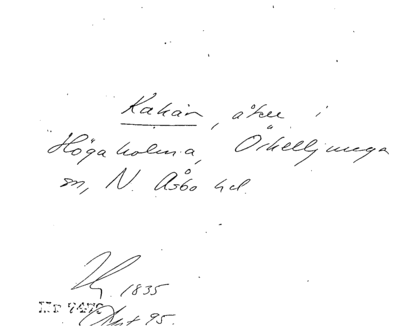 Kahan, åker i
Högaholma, Örkelljunga
sn, N. Åsbo hd.
1835
95.